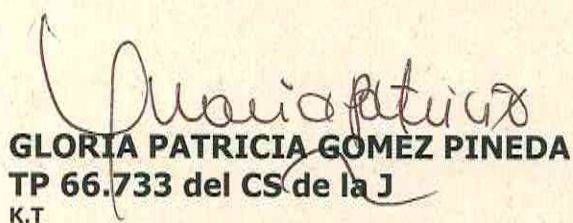 Gloria Patricia
GLORIA PATRICIA GOMEZ PINEDA
TP 66.733 del CS de la J
K.T